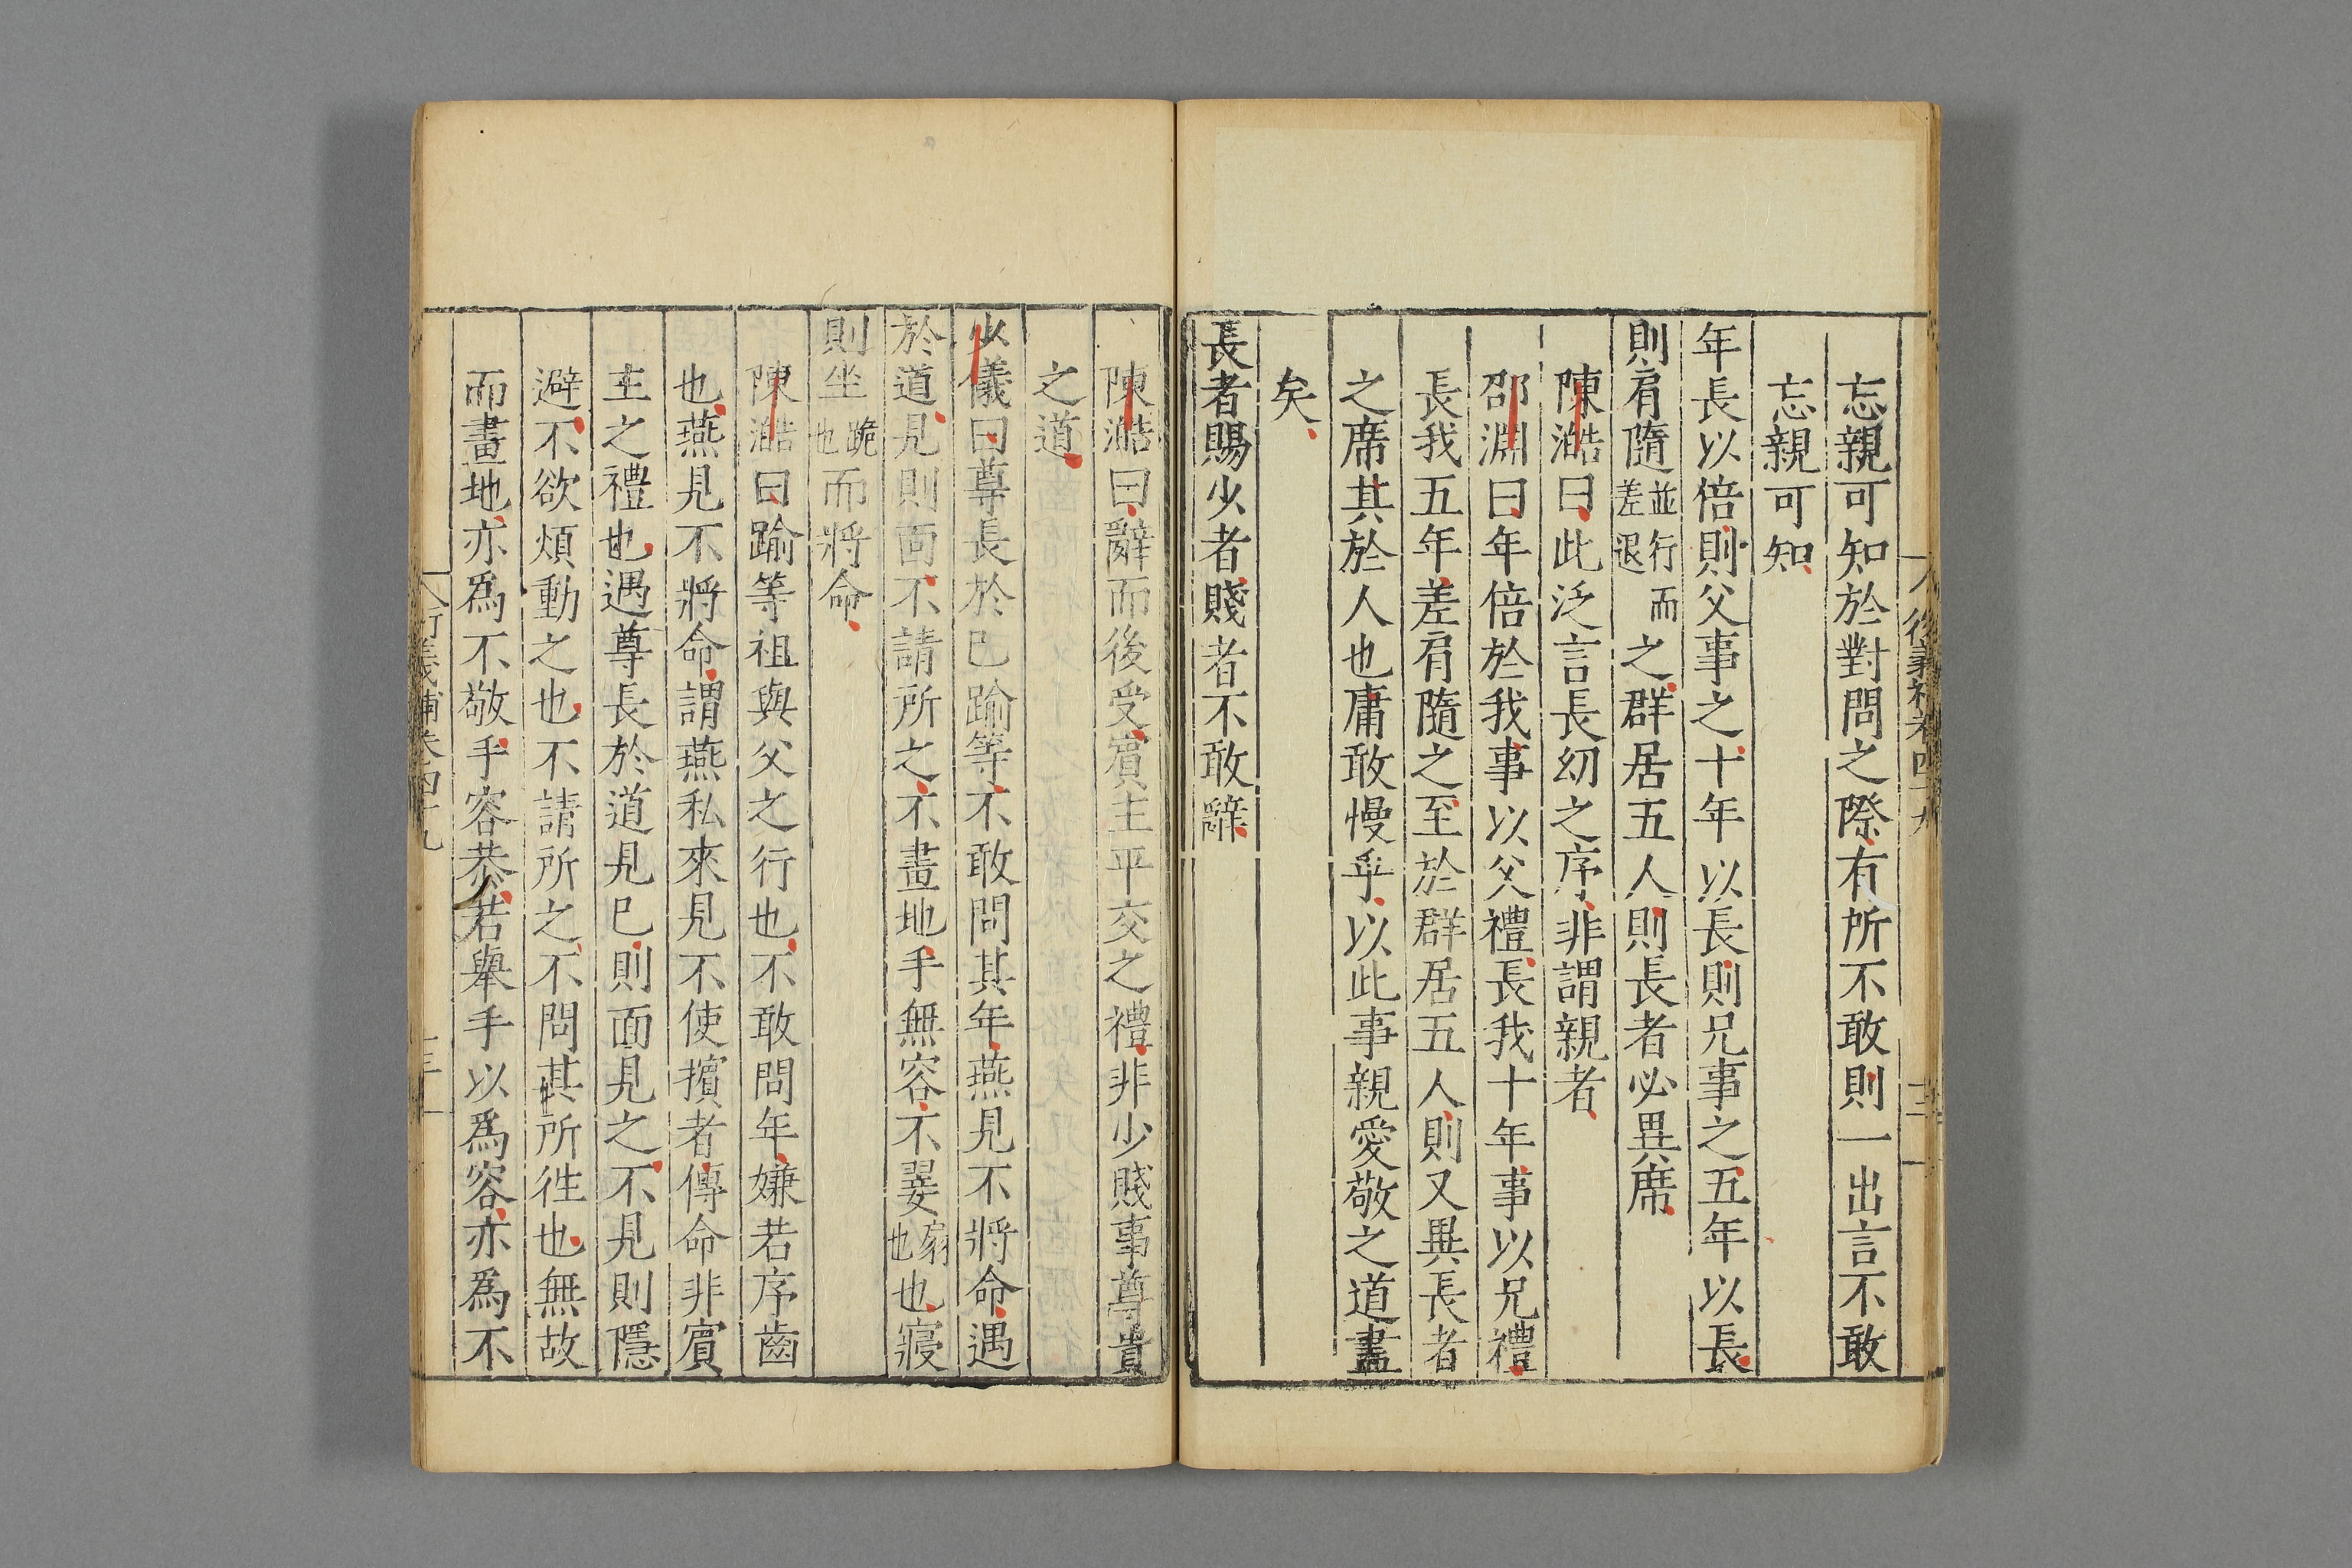 忘親可知於對問之際有所不敢則一出言不敢
忘親可知
年長以倍則父事之十年以長則兄事之五年以長
則肩隨並行而差退之群居五人則長者必異席
陳澔曰此泛言長幼之序非謂親者
邵淵曰年倍於我事以父禮長我十年事以兄禮
長我五年差肩隨之至於群居五人則又異長者
之席其於人也庸敢慢乎以此事親愛敬之道盡
矣
長者賜少者賤者不敢辭
陳澔曰辭而後受賔主平交之禮非少賤事尊貴
之道
少儀曰尊長於已踰等不敢問其年燕見不將命遇
於道見則面不請所之不畫地手無容不翣扇也也寢
則坐跪也而將命
陳澔曰踰等祖與父之行也不敢問年嫌若序齒
也燕見不將命謂燕私來見不使擯者傳命非賔
主之禮也遇尊長於道見已則面見之不見則隱
避不欲煩動之也不請所之不問其所徃也無故
而畫地亦為不敬手容恭若舉手以為容亦為不